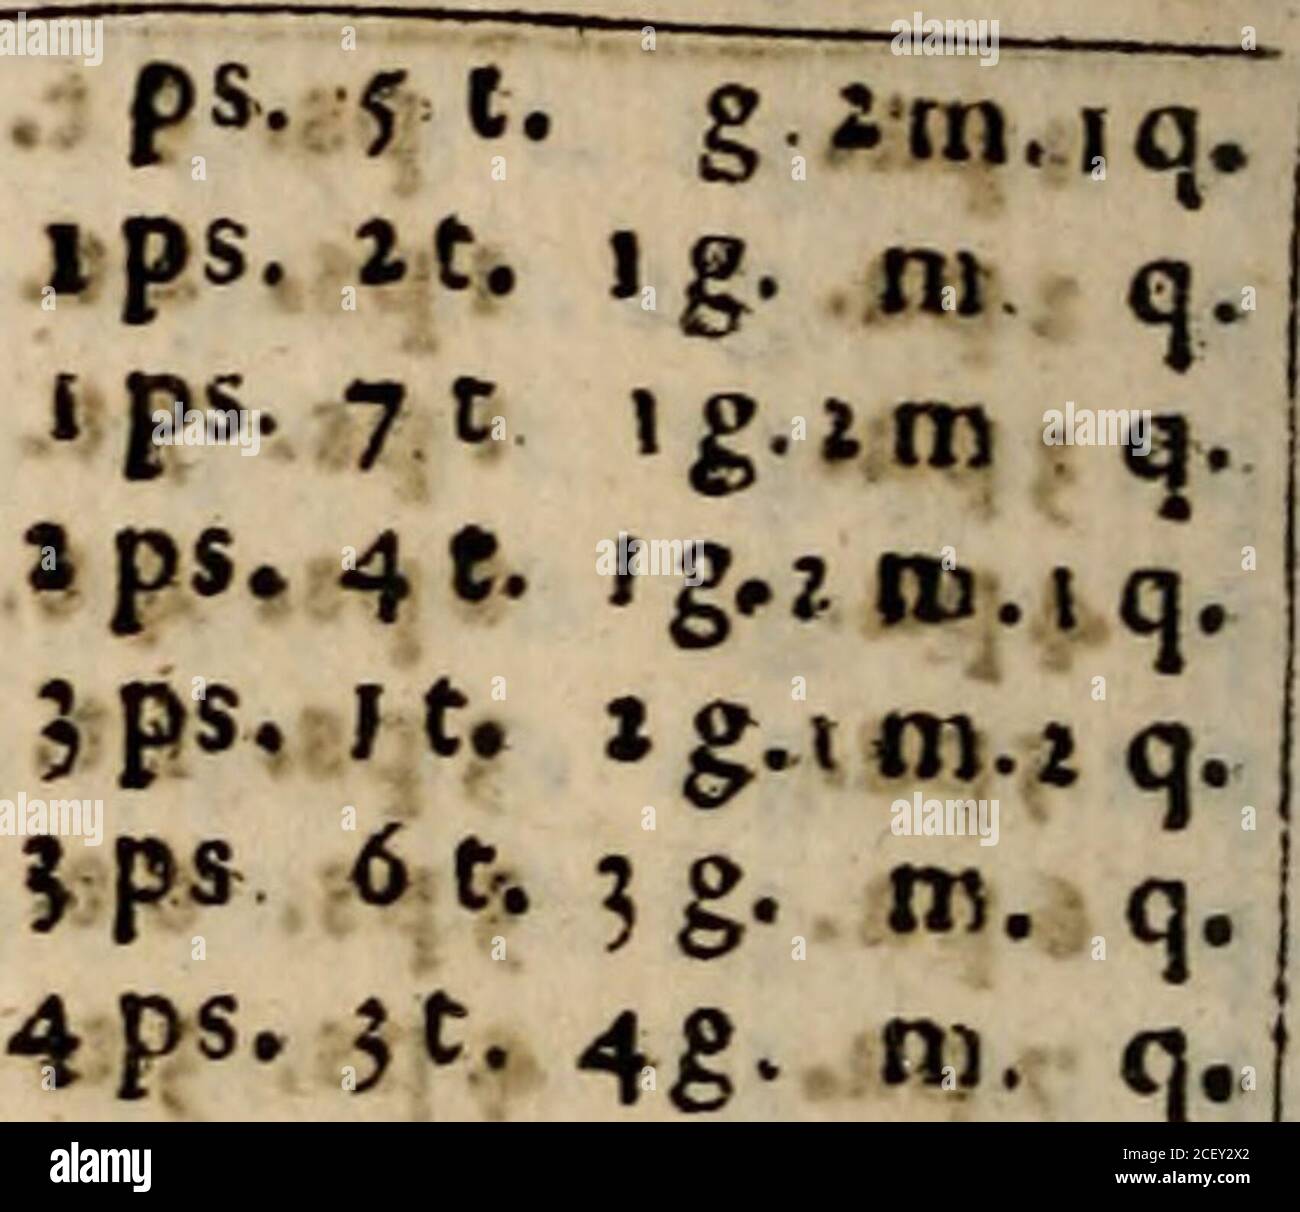 ps. 5 t. g. 2 m. 1 q.
1 ps. 2 t. 1 g. m. q.
1 ps. 7 t. 1 g. 2 m q.
2 ps. 4 t. 1 g. 2 m. 1 q.
3 ps. 1 t. 2 g. 1 m. 2 q.
3 ps. 6 t. 3 g. m. q.
4 ps. 3 t. 4 g. m. q.
alamy
Image ID: 2CEY2X2
www.alamy.com